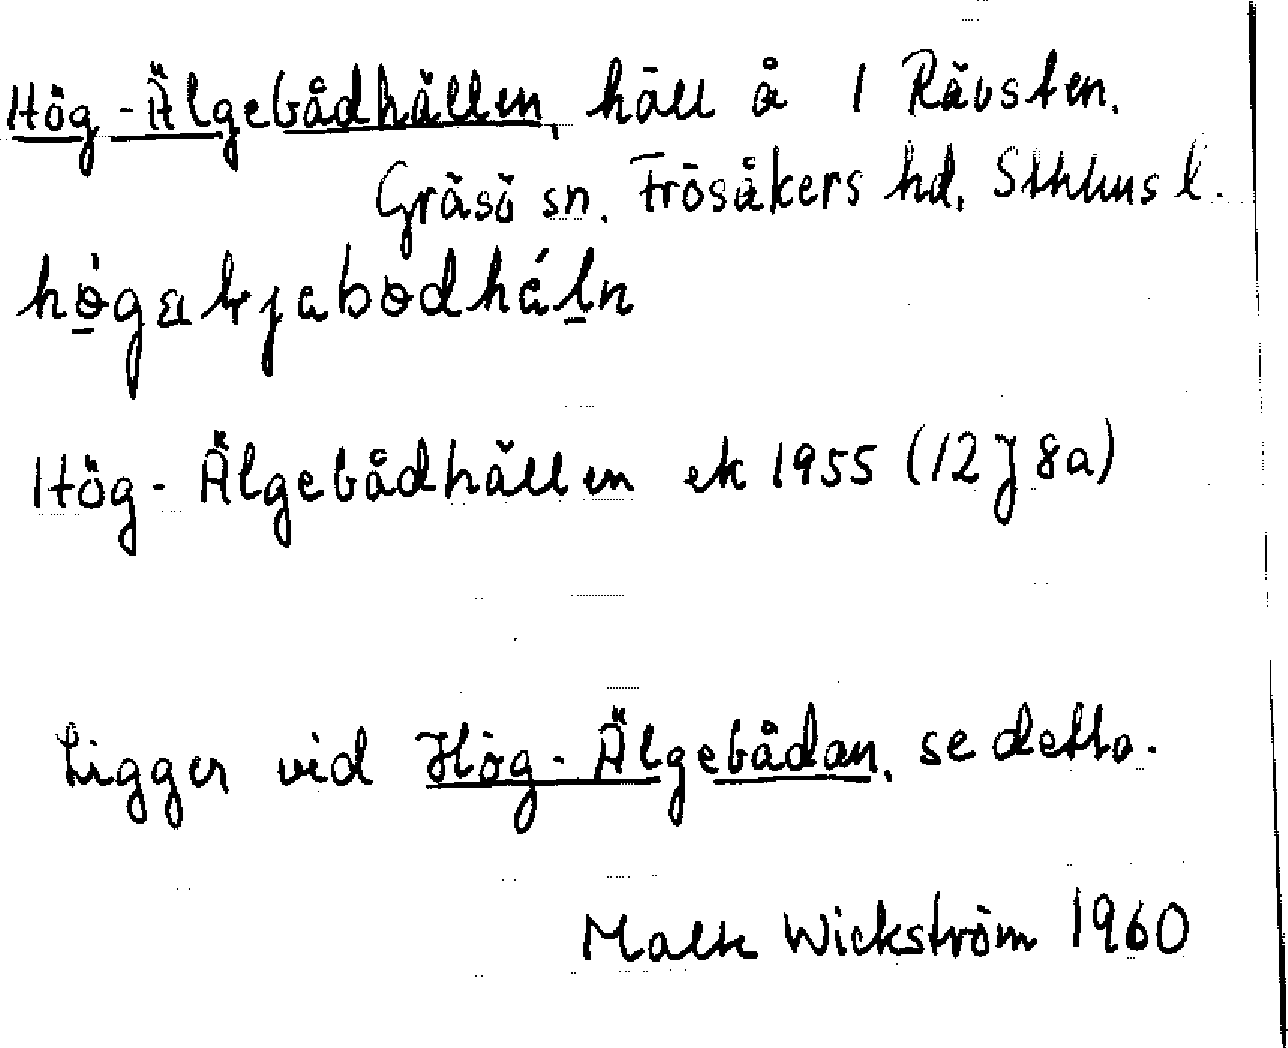 Hög-Älgebådhällen, häll å 1 Rävsten.
Gräsö sn. Frösåkers hd, Sthlms l.
Hög-Älgebådhällen ek 1955 (12 J 8a)
Ligger vid Hög-Älgebådan, se detta.
Malte Wickström 1960